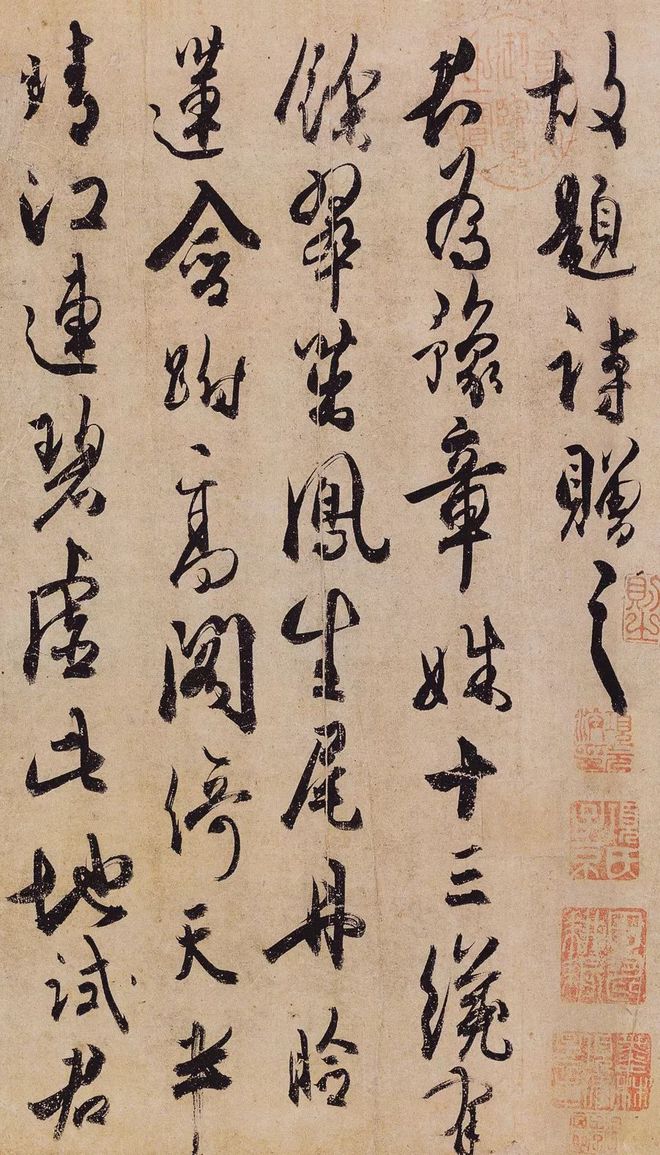 故題詩贈之
君為豫章姝十三纔有
餘翠茁鳳生尾丹臉
蓮含跗高閣倚天半
晴江連碧虛此地試君